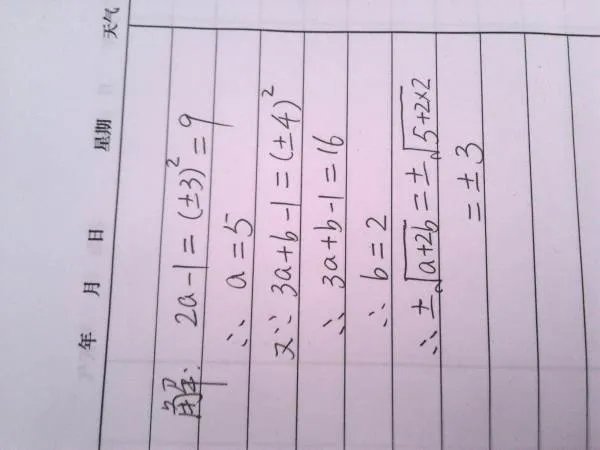 年 月 日 星期 天气
解: 2a-1=(±3)²=9
∴ a=5
又∵ 3a+b-1=(±4)²
∴ 3a+b-1=16
∴ b=2
∴ ±√(a+2b)=±√(5+2×2)
=±3